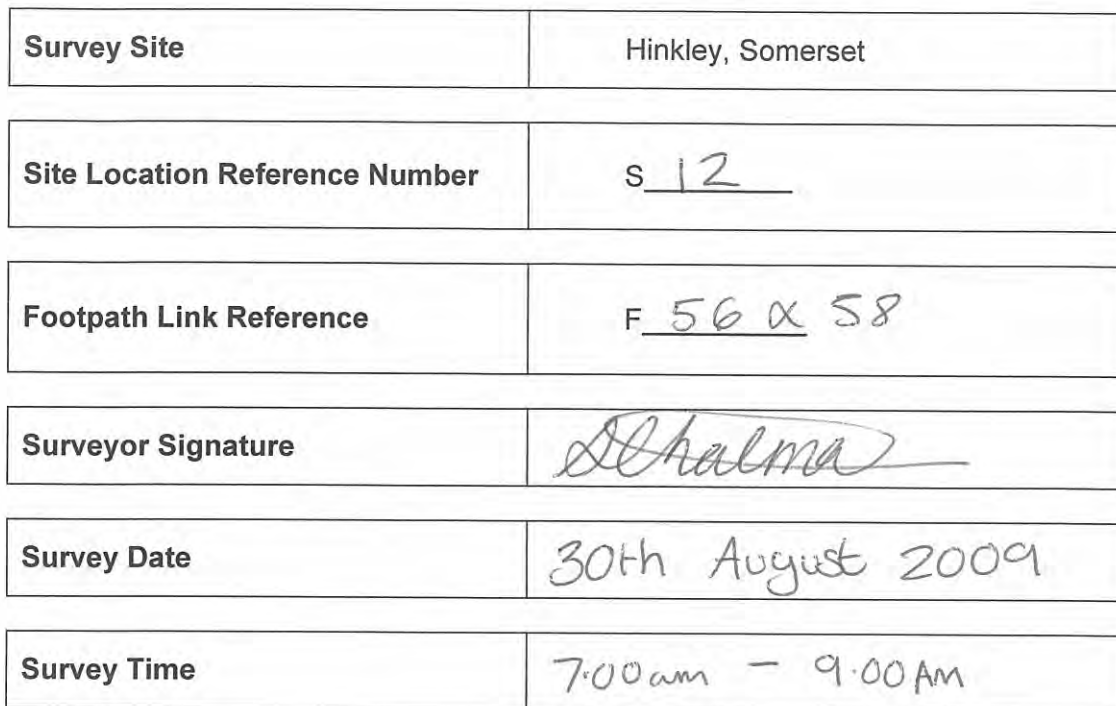 Survey Site Hinkley, Somerset
Site Location Reference Number S 12
Footpath Link Reference F 56 & 58
Surveyor Signature
Survey Date 30th August 2009
Survey Time 7:00am - 9.00AM